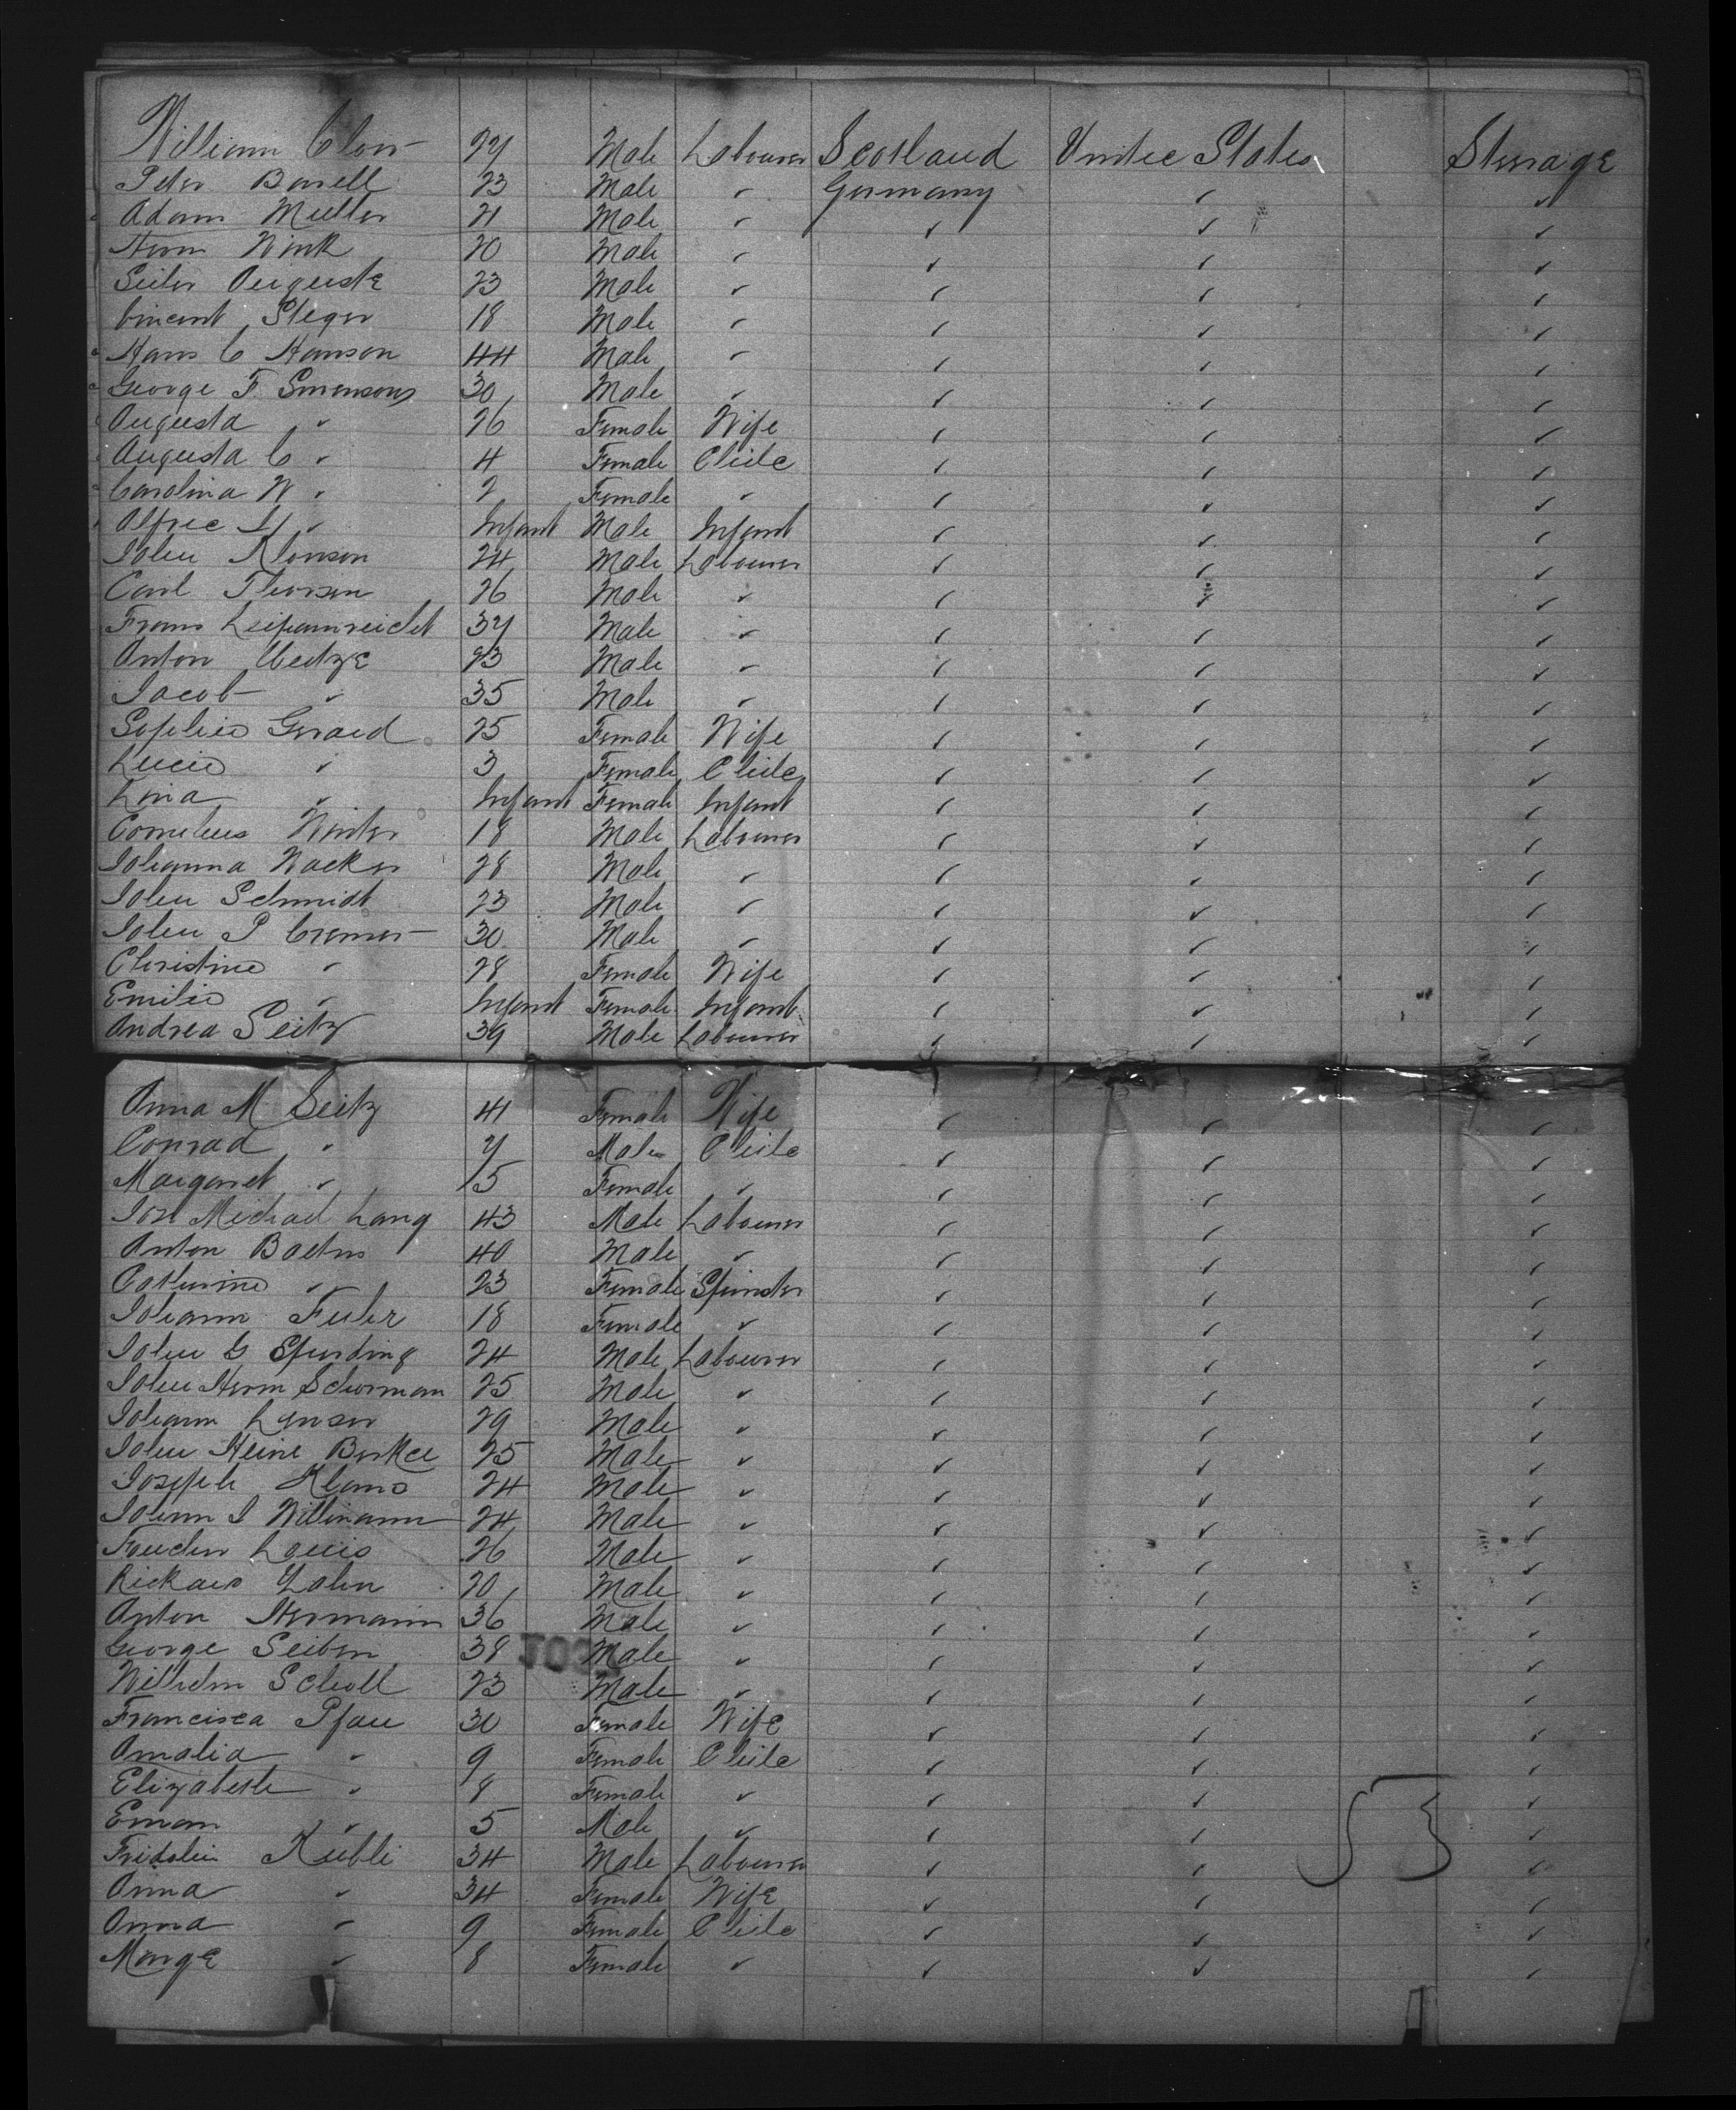 William Clow 27 Male Labourer Scotland United States Steerage
Peter Barell 23 Male " Germany " "
Adam Muller 21 Male " " " "
Herm Wink 20 Male " " " "
Seiler Auguste 23 Male " " " "
Vincent Steger 18 Male " " " "
Hans C Hanson 44 Male " " " "
George F. Swensons 30 Male " " " "
Augusta " 26 Female Wife " " "
Augusta C " 4 Female Child " " "
Carolina W " 2 Female " " " "
Alfred " Infant Male Infant " " "
John Monson 24 Male Labourer " " "
Carl Thorsen 26 Male " " " "
Frans 37 Male " " " "
Anton 23 Male " " " "
Jacob " 35 Male " " " "
Sophie Gerard 25 Female Wife " " "
Lucie " 3 Female Child " " "
Lina " Infant Female Infant " " "
Cornelius Winter 18 Male Labourer " " "
Johanna Wacker 28 Male " " " "
John Schmidt 23 Male " " " "
John P Cremer 30 Male " " " "
Christine " 28 Female Wife " " "
Emilie " Infant Female Infant " " "
Andrea Seitz 39 Male Labourer " " "
Anna M Seitz 41 Female Wife " " "
Conrad " 7 Male Child " " "
Margaret " 15 Female " " " "
Jos Michael Lang 43 Male Labourer " " "
Anton 40 Male " " " "
Catherine " 23 Female Spinster " " "
Johann Fuhr 18 Female " " " "
John G 24 Male Labourer " " "
John Herm Schorman 25 Male " " " "
Johann Lenser 29 Male " " " "
John Heinr 25 Male " " " "
Joseph Klams 24 Male " " " "
Johann J Willmann 24 Male " " " "
Louis 26 Male " " " "
John 20 Male " " " "
Anton Hermann 36 Male " " " "
George Seiben 38 Male " " " "
Wilhelm Scholl 23 Male " " " "
Francisca Pfau 30 Female Wife " " "
Amalia " 9 Female Child " " "
Elizabeth " 8 Female " " " "
Eman " 5 Male " " " "
Fridolin Kubli 34 Male Labourer " " "
Anna " 34 Female Wife " " "
Anna " 9 Female Child " " "
Marge " 8 Female " " " "
53